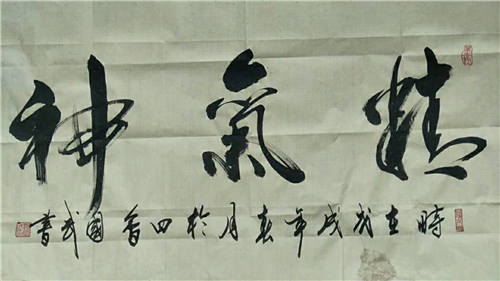 精氣神
時在戊戌年春月於四會國武書